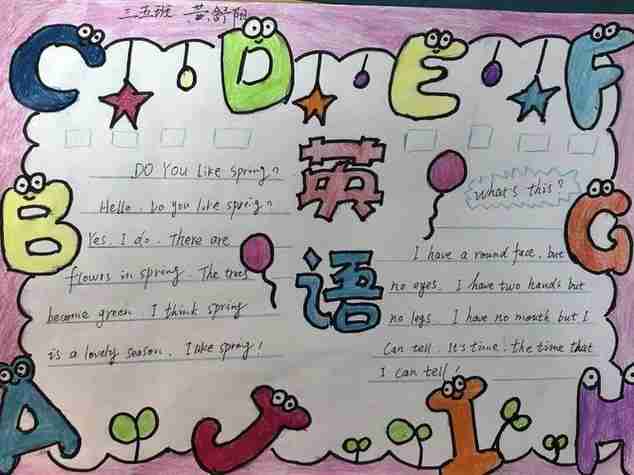 三五班 舒阳
C D E F
英
语
DO YOU Like spring?
Hello. Do you like spring?
Yes, I do. There are
flowrs in spring. The trees
become green. I think spring
is a lovely season. I like spring!
What's this?
I have a round face, but
no eyes. I have two hands but
no legs. I have no mouth but I
can tell. It's time, the time that
I can tell!
B
G
A J I H